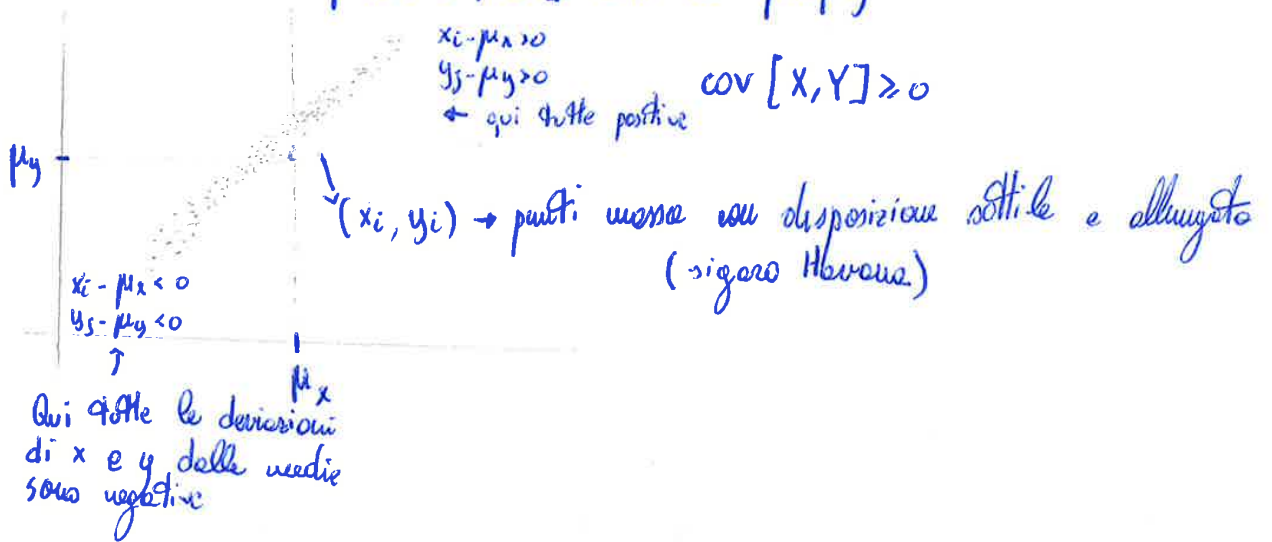 xi - μx > 0
yj - μy > 0
← qui tutte positive
cov [X, Y] ≥ 0
μy
(xi, yi) → punti massa con disposizione sottile e allungata
(sigaro Havana)
xi - μx < 0
yj - μy < 0
↑
μx
Qui tutte le deviazioni
di x e y dalle medie
sono negative